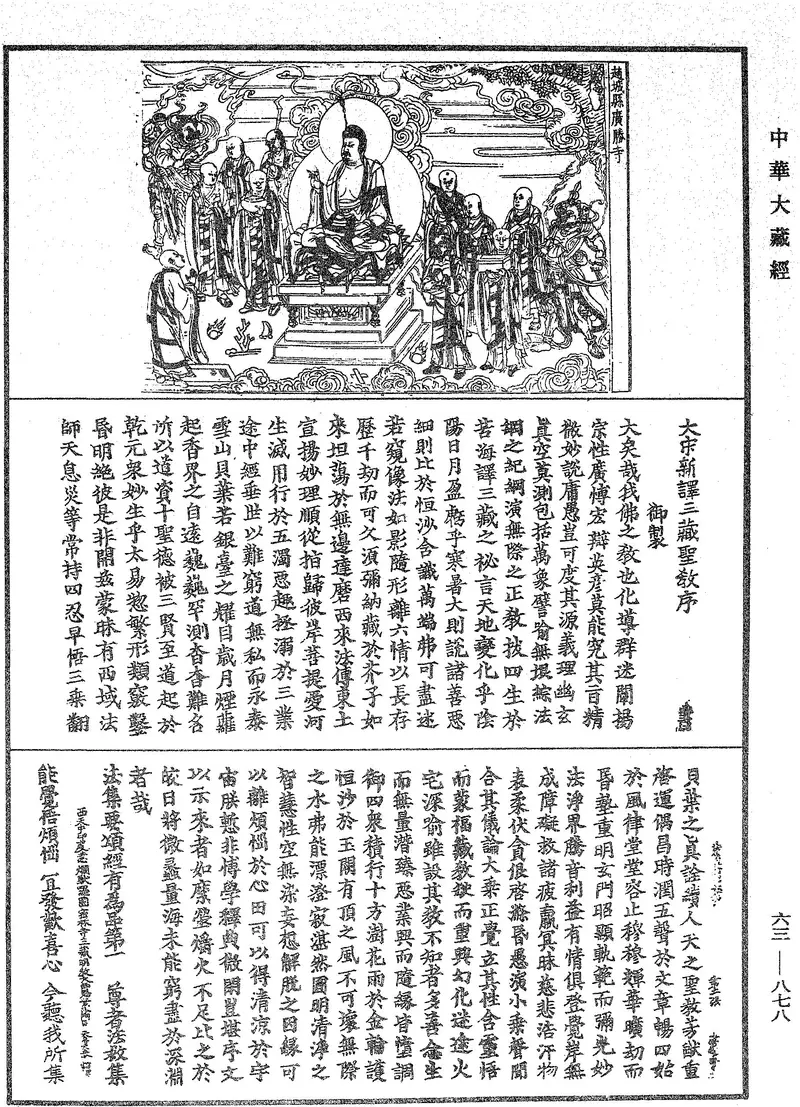 中華大藏經
六三—八七八
趙城縣廣勝寺
大宋新譯三藏聖教序
御製
大矣哉我佛之教也化導群迷闡揚
宗性廣博宏辯英彥莫能究其旨精
微妙說庸愚豈可度其源義理幽玄
真空莫測包括萬象譬喻無垠綜法
網之紀綱演無際之正教拔四生於
苦海譯三藏之秘言天地變化乎陰
陽日月盈虧乎寒暑大則說諸善惡
細則比於恒沙含識萬端弗可盡述
若窺像法如影隨形離六情以長存
歷千劫而可久須彌納藏於芥子如
來坦蕩於無邊達磨西來法傳東土
宣揚妙理順從指歸彼岸菩提愛河
生滅用行於五濁惡趣拯溺於三業
途中經垂世以難窮道無私而永泰
雪山貝葉若銀臺之耀目歲月煙蘿
起香界之自遠巍巍罕測杳杳難名
所以道資十聖德被三賢至道起於
乾元眾妙生乎太易惣繁形類竅鑿
昏明絕彼是非開茲蒙昧有西域法
師天息災等常持四忍早悟三乘翻
貝葉之真詮續人天之聖教芳猷重
啓運偶昌時潤五聲於文章暢四始
於風律堂堂容止穆穆輝華曠劫而
昏墊重明玄門昭顯軌範而彌光妙
法淨界騰音利益有情俱登覺岸無
成障礙救諸疲羸冥昧慈悲浩汗物
表柔伏貪很啓滌昏愚演小乘聲聞
合其儀論大乘正覺立其性含靈悟
而蒙福藏教缺而重興幻化迷途火
宅深喻雖設其教不知者多善念生
而無量潛臻惡業興而隨緣皆墮調
御四眾積行十方澍花雨於金輪護
恒沙於玉闕有頂之風不可壞無際
之水弗能漂澄寂湛然圓明清淨之
智慧性空無染妄想解脫之因緣可
以離煩惱於心田可以得清涼於宇
宙朕慙非博學釋典微閑豈堪序文
以示來者如縻螢爝火不足比之於
皎日將微蠡量海未能窮盡於深淵
者哉
法集要頌經有為品第一
尊者法救集
能覺悟煩惱 宜發歡喜心 今聽我所集